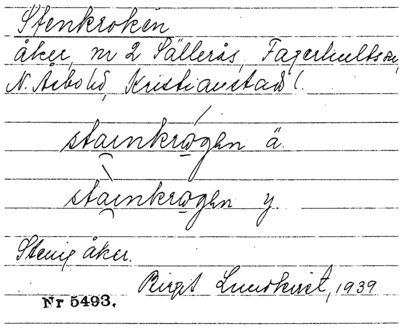 Stenkroken
åker, nr 2 Sällerås, Fagerhults sn,
N. Åsbo hd, Kristianstads l.
stainkrogen ä.
stainkrogen y.
Stenig åker.
Birgit Lundkvist, 1939
Nr 5493.